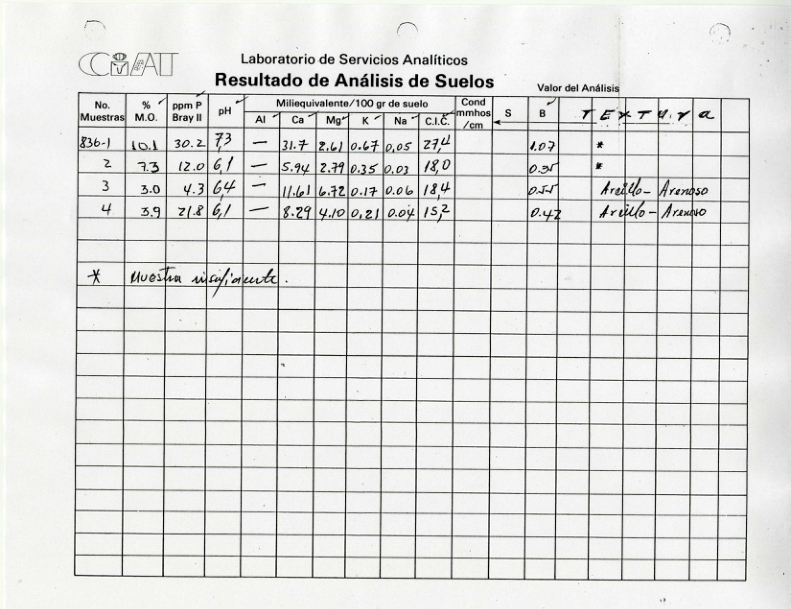 CIAT
Laboratorio de Servicios Analíticos
Resultado de Análisis de Suelos
Valor del Análisis
No. Muestras % M.O. ppm P Bray II pH Miliequivalente/100 gr de suelo Cond mmhos /cm S B Textura
Al Ca Mg K Na C.I.C.
836-1 10.1 30.2 7,3 — 31.7 2.61 0.67 0,05 27,4 1.07 *
2 7.3 12.0 6,1 — 5.94 2.79 0.35 0.03 18,0 0.35 *
3 3.0 4.3 6,4 — 11.61 6.72 0.17 0.06 18,4 0.55 Arcillo-Arenoso
4 3.9 21.8 6,1 — 8.29 4.10 0,21 0.04 15,2 0.42 Arcillo-Arenoso
* Muestra insuficiente.